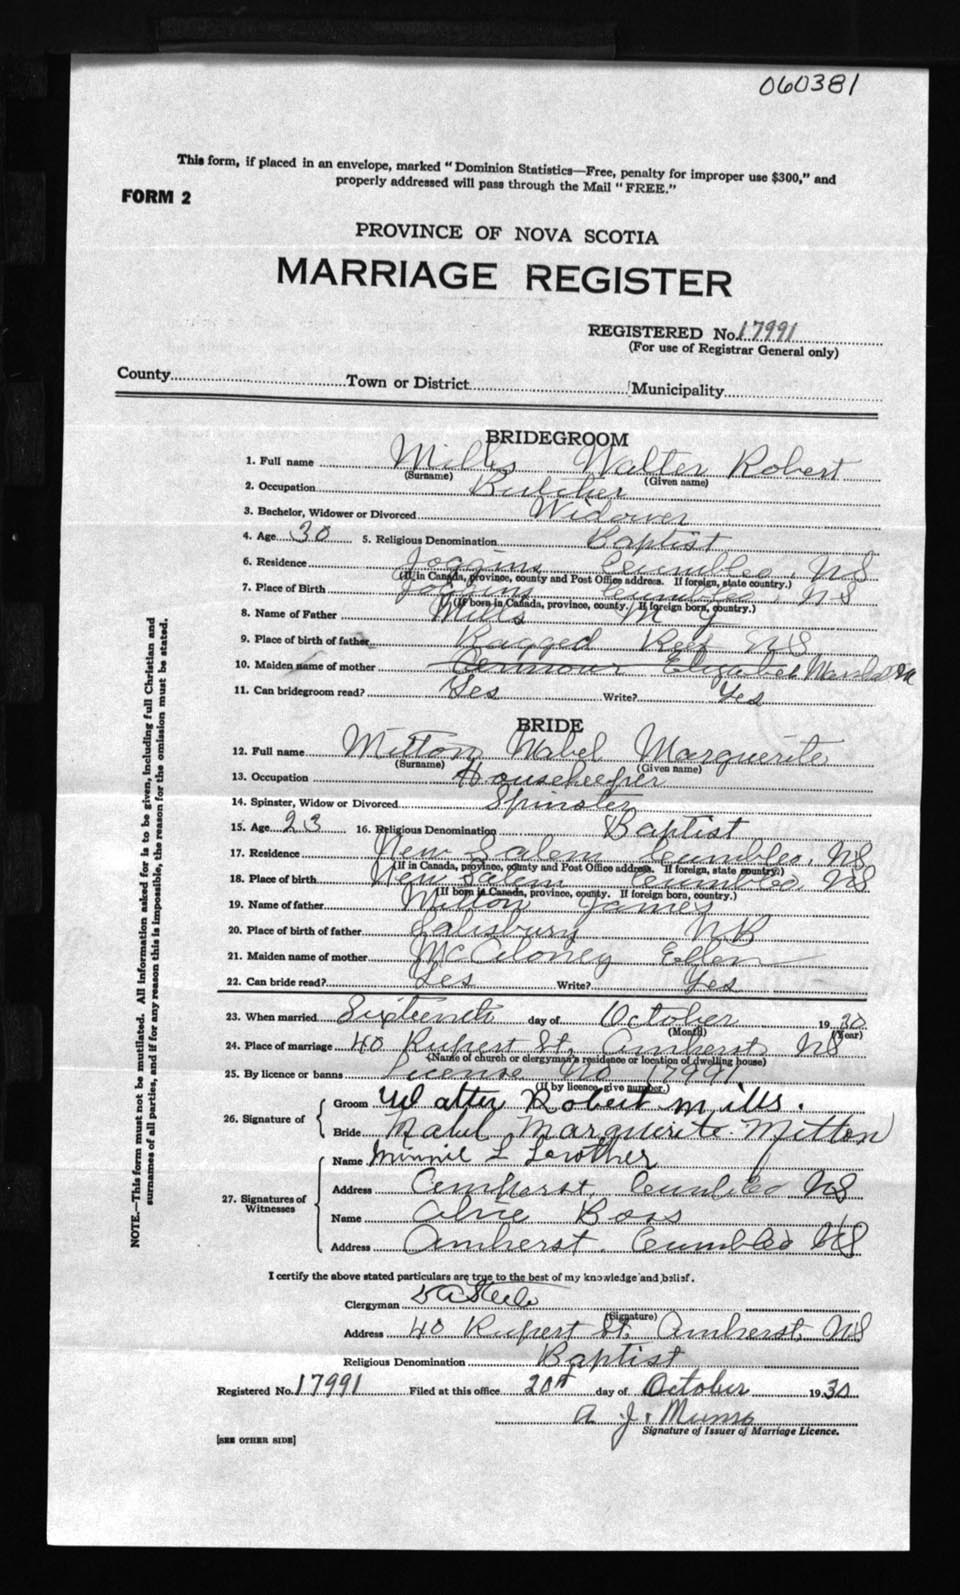 060381
This form, if placed in an envelope, marked "Dominion Statistics—Free, penalty for improper use $300," and
properly addressed will pass through the Mail "FREE."
FORM 2
PROVINCE OF NOVA SCOTIA
MARRIAGE REGISTER
REGISTERED No. 17991
(For use of Registrar General only)
County Town or District Municipality
BRIDEGROOM
1. Full name Mills Walter Robert
(Surname) (Given name)
2. Occupation Butcher
3. Bachelor, Widower or Divorced Widower
4. Age 30 5. Religious Denomination Baptist
6. Residence Joggins Cumb Co. NS
(If in Canada, province, county and Post Office address. If foreign, state country.)
7. Place of Birth Joggins Cumb Co. NS
(If born in Canada, province, county. If foreign born, country.)
8. Name of Father Mills M
9. Place of birth of father Ragged Reef NS
10. Maiden name of mother Elizabeth
11. Can bridegroom read? Yes Write? Yes
BRIDE
12. Full name Mitton Mabel Marguerite
(Surname) (Given name)
13. Occupation Housekeeper
14. Spinster, Widow or Divorced Spinster
15. Age 23 16. Religious Denomination Baptist
17. Residence New Salem Cumb Co. NS
(If in Canada, province, county and Post Office address. If foreign, state country.)
18. Place of birth New Salem Cumb Co. NS
(If born in Canada, province, county. If foreign born, country.)
19. Name of father Mitton James
20. Place of birth of father Salisbury NB
21. Maiden name of mother McAloney Ellen
22. Can bride read? Yes Write? Yes
23. When married Sixteenth day of October 1930
(Month) (Year)
24. Place of marriage 40 Rupert St. Amherst NS
(Name of church or clergyman's residence or location of dwelling house)
25. By licence or banns License No 17991
(If by licence, give number.)
26. Signature of
Groom Walter Robert Mills.
Bride Mabel Marguerite Mitton
27. Signatures of Witnesses
Name Minnie L Lowther
Address Amherst, Cumb Co NS
Name
Address Amherst. Cumb Co NS
I certify the above stated particulars are true to the best of my knowledge and belief.
Clergyman Steele
(Signature)
Address 40 Rupert St. Amherst, NS
Religious Denomination Baptist
Registered No. 17991 Filed at this office 20th day of October 1930
A. J. Munro
Signature of Issuer of Marriage Licence.
[SEE OTHER SIDE]
NOTE.—This form must not be mutilated. All information asked for is to be given, including full Christian and
surnames of all parties, and if for any reason this is impossible, the reason for the omission must be stated.